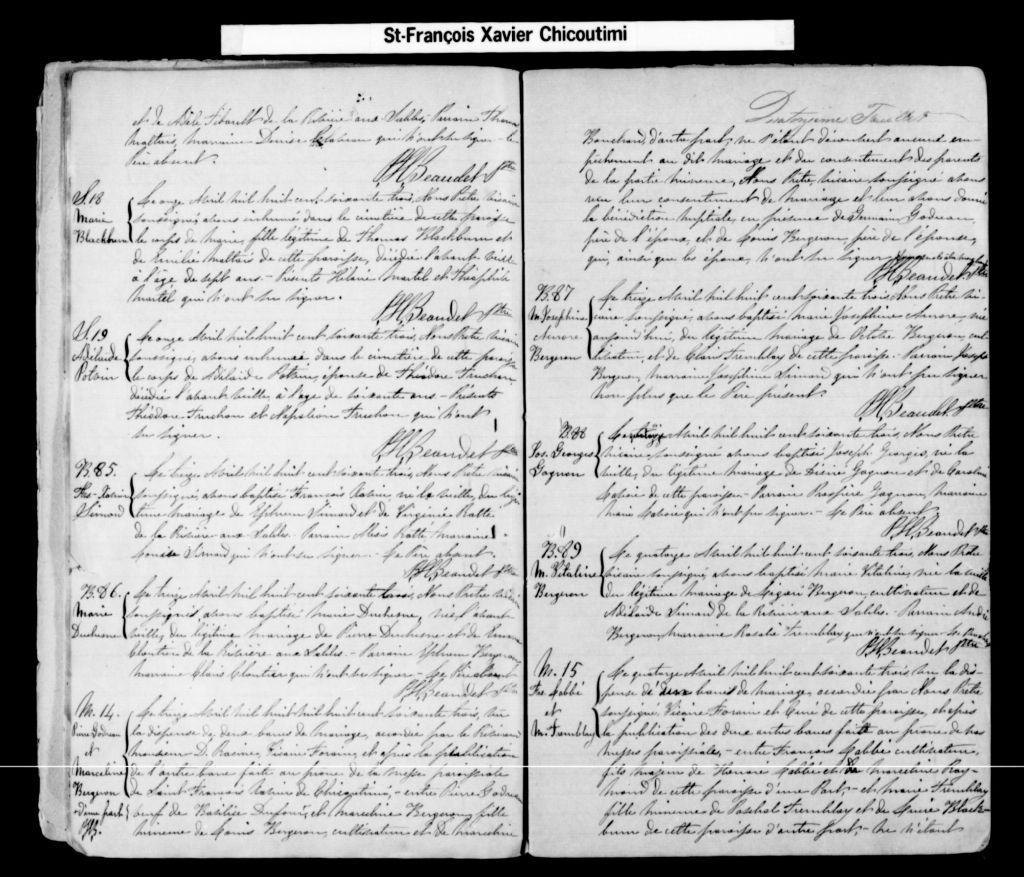 St-François Xavier Chicoutimi
et de Adèle Tibault de la Rivière aux Sables, Parrain Thomas
Maltais, Marraine Denise qui n'ont su signer le
Père absent.
Beaudet Ptre
S. 18
Marie
Blackburn
Le onze Avril mil huit cent soixante trois, Nous Prêtre Vicaire
soussigné, avons inhumé dans le cimetière de cette paroisse
le corps de Marie, fille légitime de Thomas Blackburn et
de Emilie Maltais de cette paroisse, décédée l'avant veille
à l'âge de sept ans - Présents Hilaire Martel et Théophile
Martel qui n'ont su signer.
Beaudet Ptre
S. 19
Adélaïde
Potvin
Le onze Avril mil huit cent soixante trois, Nous Prêtre Vicaire
soussigné, avons inhumé dans le cimetière de cette paroisse
le corps de Adélaïde Potvin, épouse de Théodore Truchon
décédée l'avant veille, à l'âge de soixante ans - Présents
Théodore Truchon et Napoléon Truchon qui n'ont
su signer.
Beaudet Ptre
B. 85
Frs-Xavier
Simard
Le treize Avril mil huit cent soixante trois, Nous Prêtre Vicaire
soussigné, avons baptisé François Xavier, né la veille, du légi-
time mariage de Ephrem Simard et de Virginie Ratté
de la Rivière aux Sables. Parrain Alexis Ratté Marraine
Louise Simard qui n'ont su signer. - Le Père absent.
Beaudet Ptre
B. 86.
Marie
Duchesne
Le treize Avril mil huit cent soixante trois, Nous Prêtre Vicaire
soussigné avons baptisé Marie Duchesne, née l'avant
veille, du légitime mariage de Pierre Duchesne et de
Cloutier de la Rivière aux Sables. - Parrain Ephrem Bergeron
Marraine Clais Cloutier qui n'ont su signer - Le Père absent
Beaudet Ptre
M. 14.
Pierre Godreau
et
Marceline
Bergeron
d'une part
Le treize Avril mil huit cent soixante trois, vu
la dispense de deux bans de mariage, accordée par le Révérend
Monsieur D. Racine, Vicaire Forain, et après la publication
de l'autre banc faite au prône de la messe paroissiale
de Saint François Xavier de Chicoutimi, - entre Pierre Godreau
veuf de Basilise Dufour, et Marceline Bergeron, fille
mineure de Louis Bergeron, cultivateur et de Marceline
Quatorzième Feuillet
Bouchard d'autre part, ne s'étant découvert aucun em-
pêchement au dit mariage et du consentement des parents
de la partie mineure, Nous Prêtre, Vicaire soussigné avons
reçu leur consentement de mariage et leur avons donné
la bénédiction nuptiale, en présence de Germain Godreau,
père de l'époux, et de Louis Bergeron père de l'épouse,
qui, ainsi que les époux, n'ont su signer
Beaudet Ptre
B. 87
M. Josephine
Aurore
Bergeron
Le treize Avril mil huit cent soixante trois, Nous Prêtre Vi-
caire soussigné, avons baptisé Marie Josephine Aurore, née
aujourd'hui, du légitime mariage de Octave Bergeron, cul-
tivateur, et de Clais Tremblay de cette paroisse. - Parrain Joseph
Bergeron, Marraine Josephine Simard qui n'ont pu signer
non plus que le Père présent.
Beaudet Ptre
B. 88
Jos. Georges
Gagnon
Le quatorze Avril mil huit cent soixante trois, Nous Prêtre
Vicaire soussigné avons baptisé Joseph Georges, né la
veille, du légitime mariage de Gagnon et de Caroline
de cette paroisse - Parrain Prospère Gagnon, Marraine
Marie qui n'ont pu signer. - Le Père absent.
Beaudet Ptre
B. 89
M. Vitaline
Bergeron
Le quatorze Avril mil huit cent soixante trois, Nous Prêtre
Vicaire soussigné, avons baptisé Marie Vitaline, née la veille
du légitime mariage de Bergeron, cultivateur et de
Adélaïde Simard de la Rivière aux Sables. Parrain André
Bergeron, Marraine Rosalie Tremblay qui n'ont su signer.
Beaudet Ptre
M. 15
Frs. Gobbé
et
M. Tremblay
Le quatorze Avril mil huit cent soixante trois, vu la dis-
pense de deux bans de mariage, accordée par Nous Prêtre
soussigné, Vicaire Forain et Curé de cette paroisse, et après
la publication des deux autres bans faite au prône de nos
messes paroissiales, - entre François Gobbé cultivateur,
fils majeur de Honoré Gobbé et de Marceline Ray-
mond de cette paroisse d'une Part, - et Marie Tremblay
fille mineure de Paschal Tremblay et de Marie Black-
burn de cette paroisse d'autre part, - ne s'étant